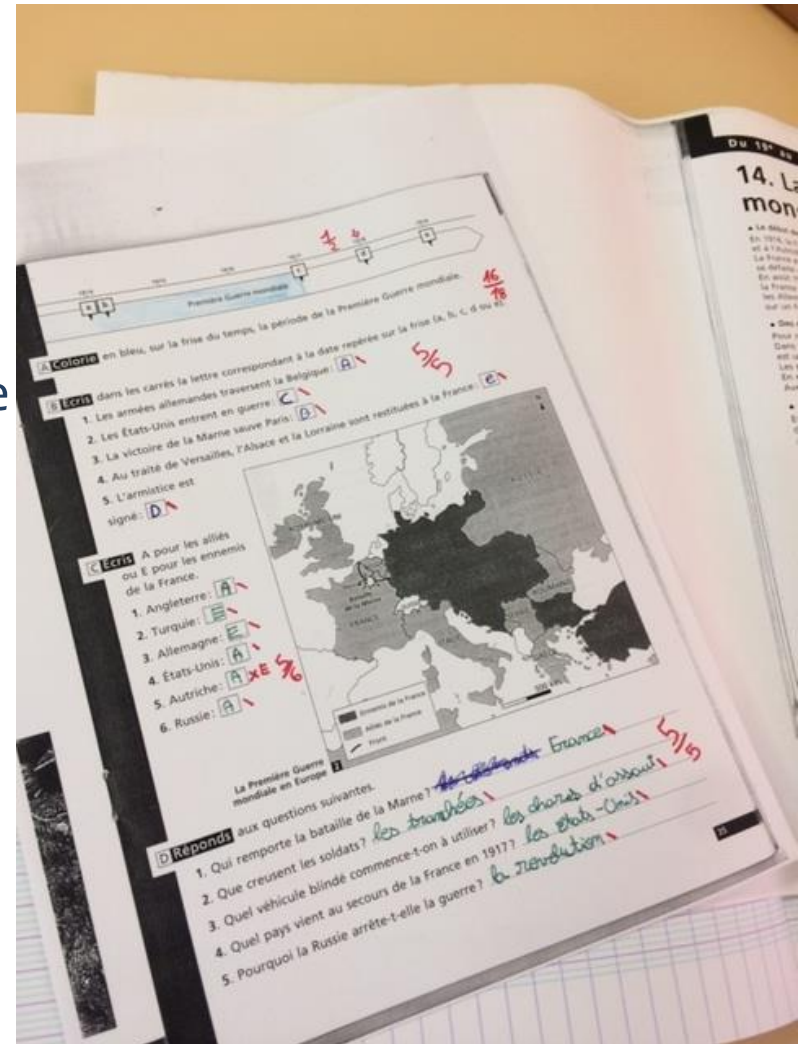 1914
1915
1916
1917
1918
1919
a b
c
d
e
Première Guerre mondiale
1/2
16/18
A Colorie en bleu, sur la frise du temps, la période de la Première Guerre mondiale.
B Écris dans les carrés la lettre correspondant à la date repérée sur la frise (a, b, c, d ou e).
1. Les armées allemandes traversent la Belgique: A
2. Les États-Unis entrent en guerre: C
3. La victoire de la Marne sauve Paris: B
4. Au traité de Versailles, l'Alsace et la Lorraine sont restituées à la France: e
5. L'armistice est
signé: D
5/5
C Écris A pour les alliés
ou E pour les ennemis
de la France.
1. Angleterre: A
2. Turquie: E
3. Allemagne: E
4. États-Unis: A
5. Autriche: A x E 5/6
6. Russie: A
Bataille
de la Marne
FRANCE
ITALIE
ROUMANIE
500 km
Ennemis de la France
Alliés de la France
Front
La Première Guerre
mondiale en Europe 2
D Réponds aux questions suivantes.
1. Qui remporte la bataille de la Marne? France
2. Que creusent les soldats? les tranchées
3. Quel véhicule blindé commence-t-on à utiliser? les chars d'assaut
4. Quel pays vient au secours de la France en 1917? les états-Unis
5. Pourquoi la Russie arrête-t-elle la guerre? la révolution
5/5
35
Du 19e au
14. La
mon
Le début de
e